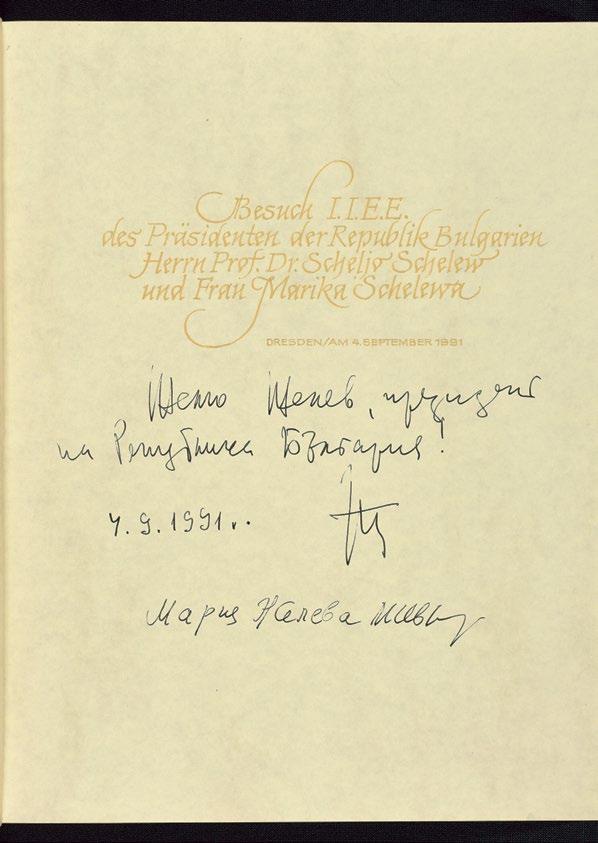 Besuch I.I.E.E.
des Präsidenten der Republik Bulgarien
Herrn Prof. Dr. Scheljo Schelew
und Frau Marika Schelewa
DRESDEN/AM 4. SEPTEMBER 1991
Желю Желев, президент
на Република България!
4.9.1991..
Мария Желева